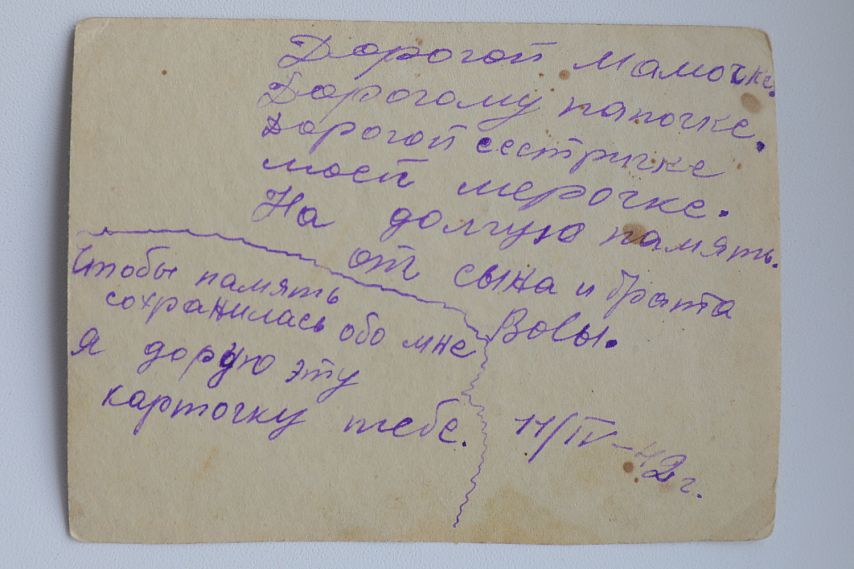 Дорогой мамочке.
Дорогому папочке.
Дорогой сестричке
моей мерочке.
На долгую память.
от сына и брата
Вовы.
Чтобы память
сохранилась обо мне
я дорую эту
карточку тебе.
11/IV-42 г.